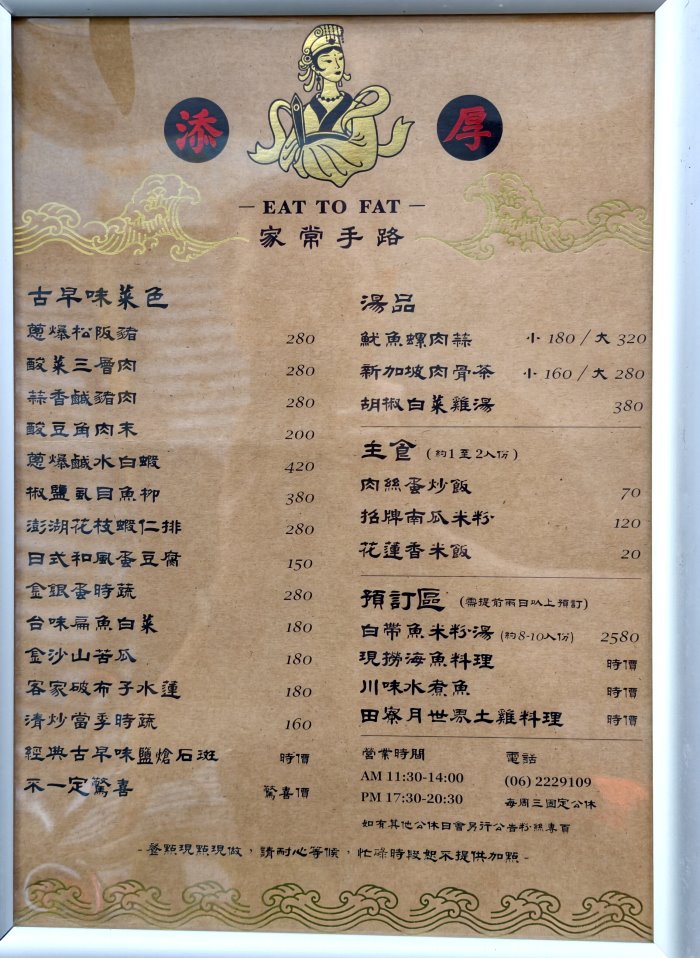 添 厚
EAT TO FAT
家常手路
古早味菜色
蔥爆松阪豬 280
酸菜三層肉 280
蒜香鹹豬肉 280
酸豆角肉末 200
蔥爆鹹水白蝦 420
椒鹽虱目魚柳 380
澎湖花枝蝦仁排 280
日式和風蛋豆腐 150
金銀蛋時蔬 280
台味扁魚白菜 180
金沙山苦瓜 180
客家破布子水蓮 180
清炒當季時蔬 160
經典古早味鹽熗石斑 時價
不一定驚喜 驚喜價
湯品
魷魚螺肉蒜 小 180 / 大 320
新加坡肉骨茶 小 160 / 大 280
胡椒白菜雞湯 380
主食 (約1至2人份)
肉絲蛋炒飯 70
招牌南瓜米粉 120
花蓮香米飯 20
預訂區 (需提前兩日以上預訂)
白帶魚米粉湯 (約8-10人份) 2580
現撈海魚料理 時價
川味水煮魚 時價
田寮月世界土雞料理 時價
營業時間
AM 11:30-14:00
PM 17:30-20:30
電話
(06) 2229109
每周三固定公休
如有其他公休日會另行公告粉絲專頁
-餐點現點現做，請耐心等候，忙碌時段恕不提供加點-